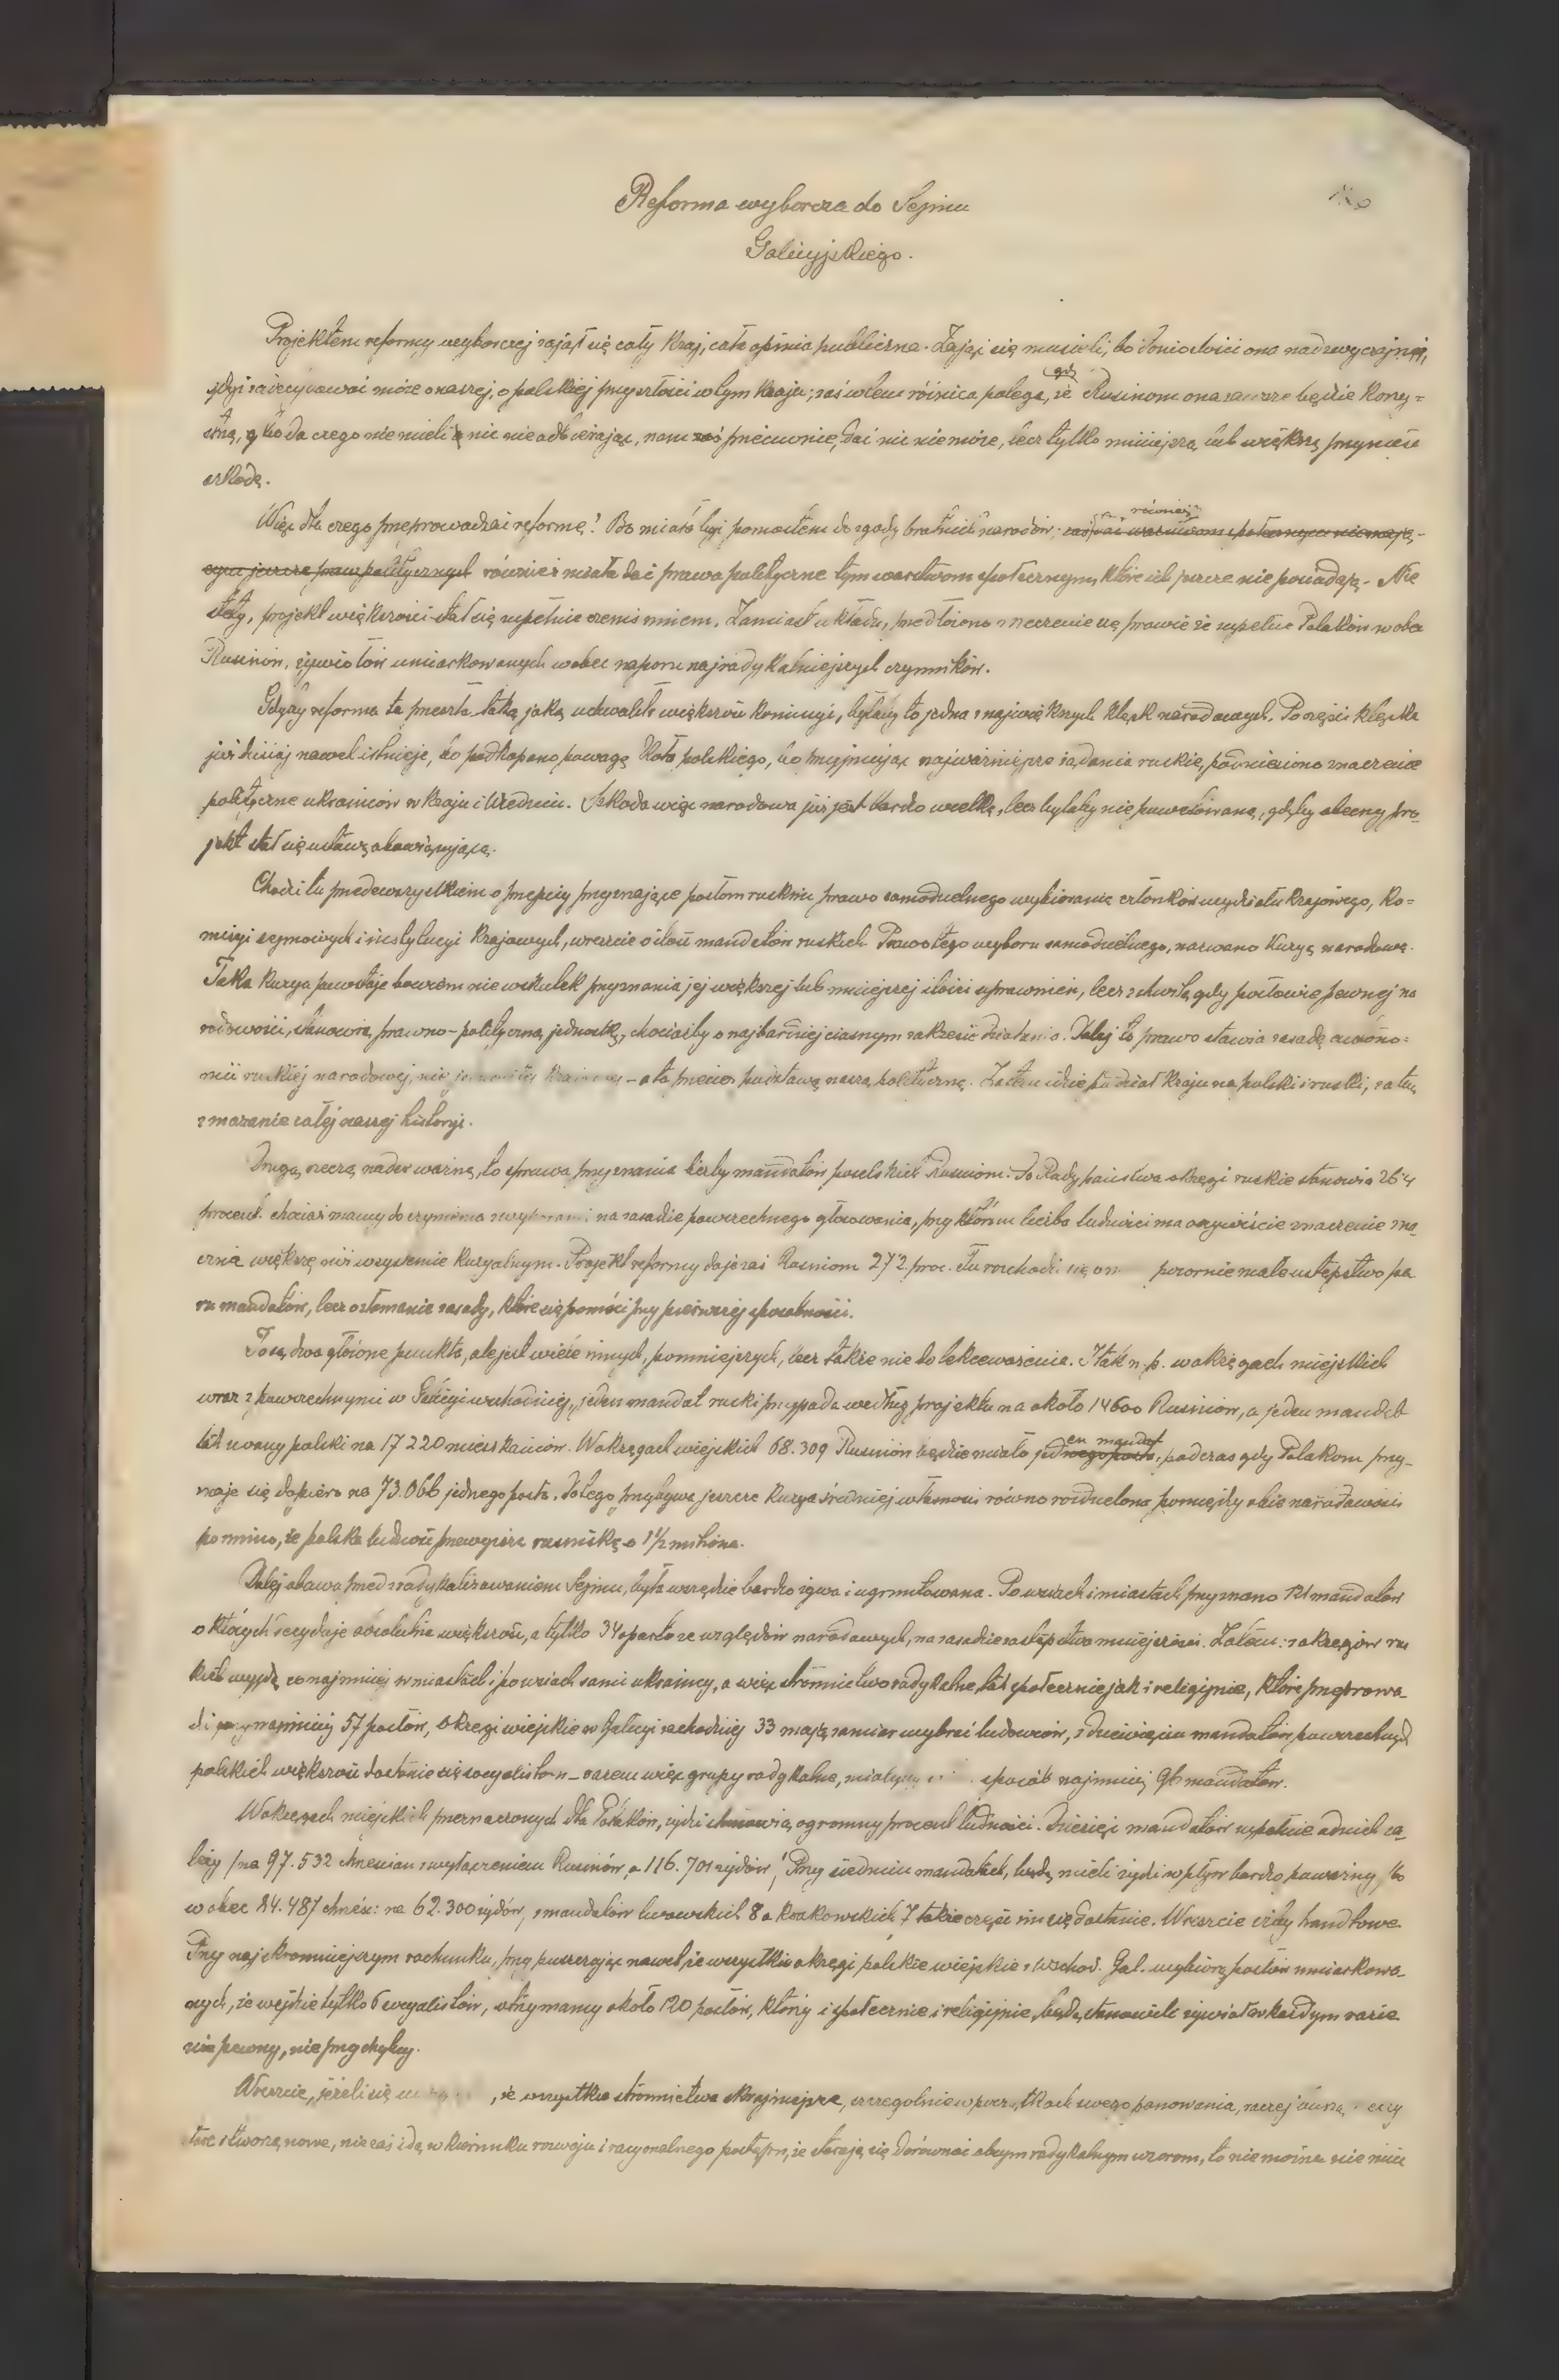 Reforma wyborcza do Sejmu
Galicyjskiego.
Projektem reformy wyborczej zajął się cały kraj, cała opinia publiczna. Zająć się musieli, bo doniosłości ona nadzwyczajnej,
gdyż zadecydować może o naszej, o polskiej przyszłości w tym kraju; zaś w tem różnica polega, że Rusinom ona zawsze będzie korzy=
stną, bo da czego nie mieli nic nie odbierając, nam zaś przeciwnie, dać nic nie może, lecz tylko mniejszą lub większą przynieść
szkodę.
Więc dla czego przeprowadzać reformę? Bo miała być pomostem do zgody bratnich narodów; również
również miała dać prawa polityczne tym warstwom społecznym, które ich jeszcze nie posiadają. Nie
stety, projekt większości stał się zupełnie czemś innem. Zamiast układu, przedłożono zrzeczenie się prawie że zupełne Polaków wobec
Rusinów, żywiołów umiarkowanych wobec naporu najradykalniejszych czynników.
Gdyby reforma ta przeszła taką jaką uchwaliła większość komisyi, byłaby to jedna z największych klęsk narodowych. Po części klęska
już dzisiaj nawet istnieje, bo podkopano powagę Koła polskiego, bo przyjmując najważniejsze żądania ruskie, podniesiono znaczenie
polityczne ukraińców w kraju i Wiedniu. Szkoda więc narodowa już jest bardzo wielką, lecz byłaby niepowetowaną, gdyby obecny pro-
jekt stał się ustawą obowiązującą.
Chodzi tu przedewszystkiem o przepisy przyznające posłom ruskim prawo samodzielnego wybierania członków wydziału krajowego, ko=
misyi sejmowych i instytucyi krajowych, wreszcie o ilość mandatów ruskich. Prawo tego wyboru samodzielnego, nazwano kuryą narodową.
Taka kurya powstaje bowiem nie wskutek przyznania jej większej lub mniejszej ilości uprawnień, lecz z chwilą gdy posłowie pewnej na
rodowości, stanowią prawno-polityczną jednostkę, chociażby o najbardziej ciasnym zakresie działania. Dalej to prawo stawia zasadę autono=
mii ruskiej narodowej, nie - a to przecież podstawę naszą polityczną. Zatem idzie podział kraju na polski i ruski, za tem
zmazanie całej naszej historyi.
Drugą rzeczą nader ważną, to sprawa przyznania liczby mandatów poselskich Rusinom. Do Rady państwa okręgi ruskie stanowią 26'4
procent. chociaż mamy do czynienia z wyborami na zasadzie powszechnego głosowania, przy którem liczba ludności ma oczywiście znaczenie zna
cznie większe niż w systemie kuryalnym. Projekt reformy daje zaś Rusinom 27'2 proc. Tu rozchodzi się o pozornie małe ustępstwo pa
ru mandatów, lecz o złamanie zasady, które się pomści przy pierwszej sposobności.
To są dwa główne punkta, ale jest wiele innych, pomniejszych, lecz także nie do lekceważenia. I tak n.p. w okręgach miejskich
wraz z powszechnymi w Galicyi wschodniej, jeden mandat ruski przypada według projektu na około 14600 Rusinów, a jeden mandat
polski na 17220 mieszkańców. W okręgach wiejskich 68.309 Rusinów będzie miało jeden mandat, podczas gdy Polakom przy-
znaje się dopiero na 73.066 jednego posła. Do tego przybywa jeszcze kurya średniej własności równo rozdzielona pomiędzy obie narodowości
pomimo, że polska ludność przewyższa rusińską o 1½ miliona.
Dalej obawa przed zradykalizowaniem Sejmu, była wszędzie bardzo żywa i ugruntowana. Po wsiach i miastach przyznano 121 mandatów
o których decyduje absolutna większość, a tylko 34 oparto ze względów narodowych, na zasadzie zastępstwa mniejszości. Zatem: z okręgów rus
kich wyjdą conajmniej w miastach i po wsiach sami ukraińcy, a więc stronnictwo radykalne, tak społecznie jak i religijnie, które przeprowa-
dzi przynajmniej 57 posłów, okręgi wiejskie w Galicyi zachodniej 33 mają zamiar wybrać ludowców, z dziewięciu mandatów powszechnych
polskich większość dostanie się socyalistom - razem więc grupy radykalne, miałyby sposób najmniej 96 mandatów.
W okręgach miejskich przeznaczonych dla Polaków, żydzi stanowią ogromny procent ludności. Dziesięć mandatów zupełnie od nich za-
leży /na 97.532 chrześcian z wyłączeniem Rusinów, a 116.701 żydów/ Przy siedmiu mandatach, będą mieli żydzi wpływ bardzo poważny, bo
wobec 84.487 chrześc: na 62.300 żydów, z mandatów lwowskich 8 a krakowskich 7 także część im się dostanie. Wreszcie izby handlowe.
Przy najskromniejszym rachunku, przypuszczając nawet, że wszystkie okręgi polskie wiejskie z wschod. Gal. wybiorą posłów umiarkowa-
nych, że wejdzie tylko 6 socyalistów, otrzymamy około 120 posłów, którzy i społecznie i religijnie, będą stanowili żywioł w każdym razie
nie pewny, nieprzychylny.
Wreszcie, jeżeli się , że wszystkie stronnictwa skrajniejsze, szczególnie w początkach swego panowania, raczej
stworzą nowe, niż zaś idą w kierunku rozwoju i racyonalnego postępu, że starają się dorównać obcym radykalnym wzorom, to nie można nie mieć